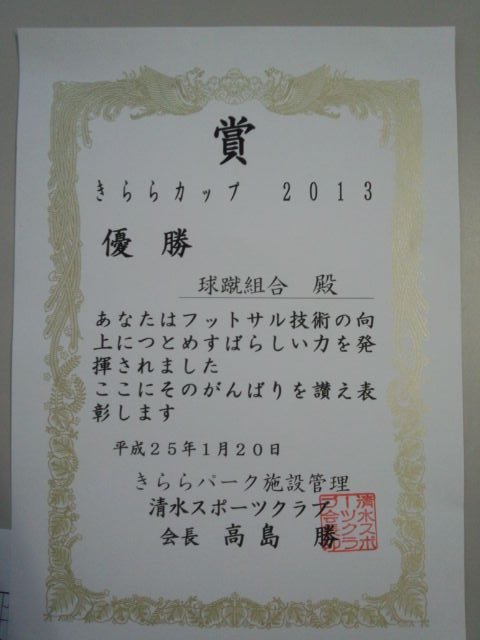 賞
きららカップ 2013
優勝
球蹴組合 殿
あなたはフットサル技術の向
上につとめすばらしい力を発
揮されました
ここにそのがんばりを讃え表
彰します
平成25年1月20日
きららパーク施設管理
清水スポーツクラブ
会長 高島 勝
清水スポ
ーツクラ
ブ会長印